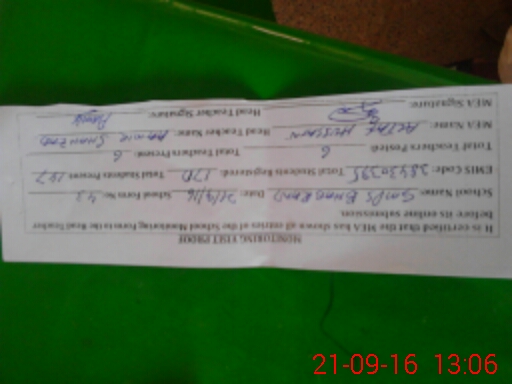 MONITORING VISIT PROOF
It is certified that the MEA has shown all entries of the School Monitoring Form to the Head Teacher
before its online submission.
School Name: Date: 21/9/16 School Form No: 43
EMIS Code: 38430395 Total Students Registered: 170 Total Students Present: 147
Total Teachers Posted: 6 Total Teachers Present: 6
MEA Name: ALTAF HUSSAIN Head Teacher Name: SHAHZAD
MEA Signature: Head Teacher Signature:
21-09-16 13:06